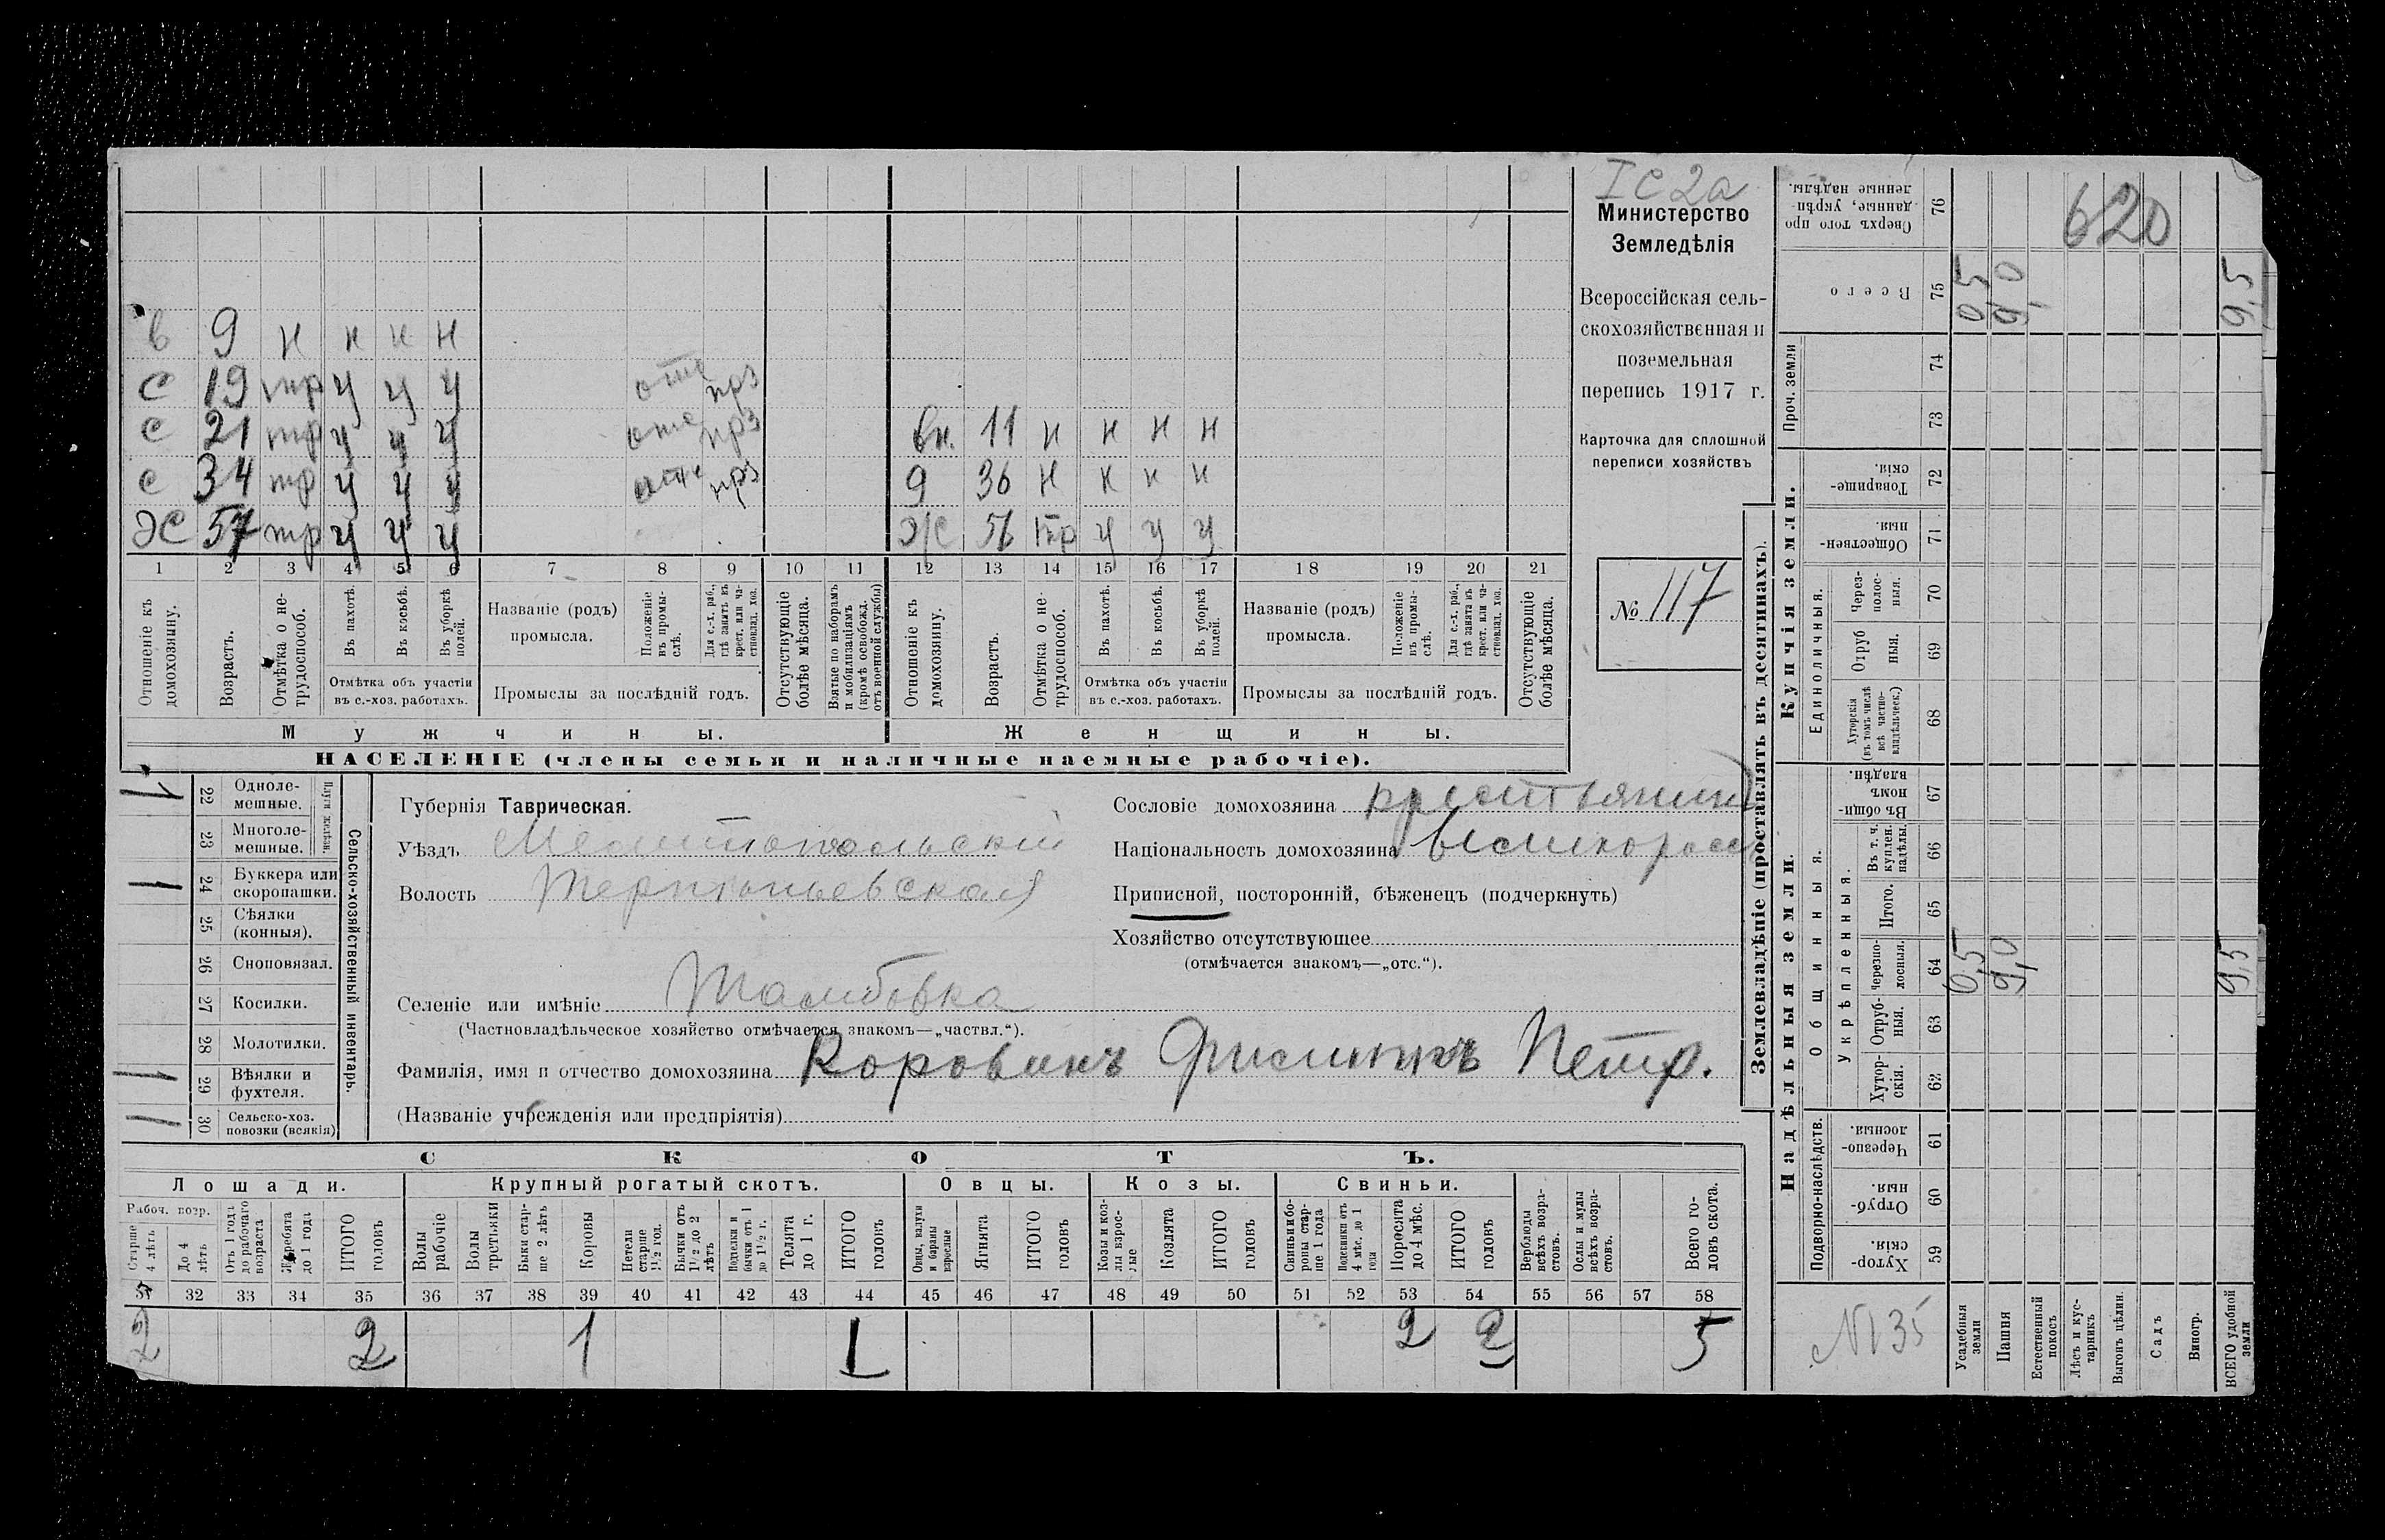 IC2a
Министерство
Земледѣлія
Всероссійская сель-
скохозяйственная и
поземельная
перепись 1917 г.
Карточка для сплошной
переписи хозяйствъ
№ 117
в 9 н н н н
с 19 тр у у у отс прз
с 21 тр у у у отс прз
с 34 тр у у у отс прз
57 тр у у у
вн. 11 н н н н
9 36 н н н н
56 тр у у у
1 2 3 4 5 6 7 8 9 10 11 12 13 14 15 16 17 18 19 20 21
Отношеніе къ домохозяину.
Возрастъ.
Отмѣтка о не-трудоспособ.
Въ пахотѣ.
Въ косьбѣ.
Въ уборкѣ полей.
Отмѣтка объ участіи въ с.-хоз. работахъ.
Названіе (родъ) промысла.
Положеніе въ промы-слѣ.
Для с.-х. раб., гдѣ занятъ въ крест. или ча-стновлад. хоз.
Промыслы за послѣдній годъ.
Отсутствующіе болѣе мѣсяца.
Взятые по наборамъ и мобилизаціямъ (кромѣ освобожд. отъ военной службы)
Отношеніе къ домохозяину.
Возрастъ.
Отмѣтка о не-трудоспособ.
Въ пахотѣ.
Въ косьбѣ.
Въ уборкѣ полей.
Отмѣтка объ участіи въ с.-хоз. работахъ.
Названіе (родъ) промысла.
Положеніе въ промы-слѣ.
Для с.-х. раб., гдѣ занята въ крест. или ча-стновлад. хоз.
Промыслы за послѣдній годъ.
Отсутствующіе болѣе мѣсяца.
Мужчины.
Женщины.
НАСЕЛЕНІЕ (члены семьи и наличные наемные рабочіе).
Сельско-хозяйственный инвентарь.
Плуги желѣзн.
1 22 Одноле-мешные.
23 Многоле-мешные.
1 24 Буккера или скоропашки.
25 Сѣялки (конныя).
26 Сноповязал.
27 Косилки.
28 Молотилки.
1 29 Вѣялки и фухтеля.
1 30 Сельско-хоз. повозки (всякія)
Губернія Таврическая.
Уѣздъ Мелитопольскій
Волость Терпѣньевская
Селеніе или имѣніе Тамбовка
(Частновладѣльческое хозяйство отмѣчается знакомъ—„частвл.“).
Фамилія, имя и отчество домохозяина Коровинъ Филиппъ Петр.
(Названіе учрежденія или предпріятія)
Сословіе домохозяина крестьянинъ
Національность домохозяина великоросс
Приписной, посторонній, бѣженецъ (подчеркнуть)
Хозяйство отсутствующее
(отмѣчается знакомъ—„отс.“).
СКОТЪ.
Лошади. Крупный рогатый скотъ. Овцы. Козы. Свиньи.
Рабоч. возр.
Старше 4 лѣтъ
До 4 лѣтъ
Отъ 1 года до рабочаго возраста
Жеребята до 1 года
ИТОГО головъ
Волы рабочіе
Волы третьяки
Быки стар-ше 2 лѣтъ
Коровы
Нетели старше 1½ год.
Бычки отъ 1½ до 2 лѣтъ
Подтелки и бычки отъ 1 до 1½ г.
Телята до 1 г.
ИТОГО головъ
Овцы, валухи и бараны взрослые
Ягнята
ИТОГО головъ
Козы и коз-лы взрос-лые
Козлята
ИТОГО головъ
Свиньи и бо-ровы стар-ше 1 года
Подсвинки отъ 4 мѣс. до 1 года
Поросята до 4 мѣс.
ИТОГО головъ
Верблюды всѣхъ возра-стовъ.
Ослы и мулы всѣхъ возра-стовъ.
Всего го-ловъ скота.
31 32 33 34 35 36 37 38 39 40 41 42 43 44 45 46 47 48 49 50 51 52 53 54 55 56 57 58
2 2 1 1 2 2 5
Землевладѣніе (проставлять въ десятинахъ).
Купчія земли.
Надѣльныя земли.
Сверхъ того про-данные, укрѣп-ленные надѣлы. 76
620
Всего 75 0,5 9,0 9,5
Проч. земли 74
73
Товарище-скія. 72
Обществен-ныя. 71
Единоличныя.
Через-полос-ныя. 70
Отруб ныя. 69
Хуторскія (въ томъ числѣ всѣ частно-владѣльческ.) 68
Общинныя.
Въ общи-номъ владѣн. 67
Укрѣпленныя.
Въ т. ч. куплен. надѣлы. 66
Итого. 65
Черезпо-лосныя. 64 0,5 9,0 9,5
Отруб-ныя. 63
Хутор-скія. 62
Подворно-наслѣдств.
Черезпо-лосныя. 61
Отруб-ныя. 60
Хутор-скія. 59
№ 35
Усадебныя земли
Пашня
Естественный покосъ
Лѣсъ и кус-тарникъ
Выгонъ цѣлин.
Садъ
Виногр.
ВСЕГО удобной земли